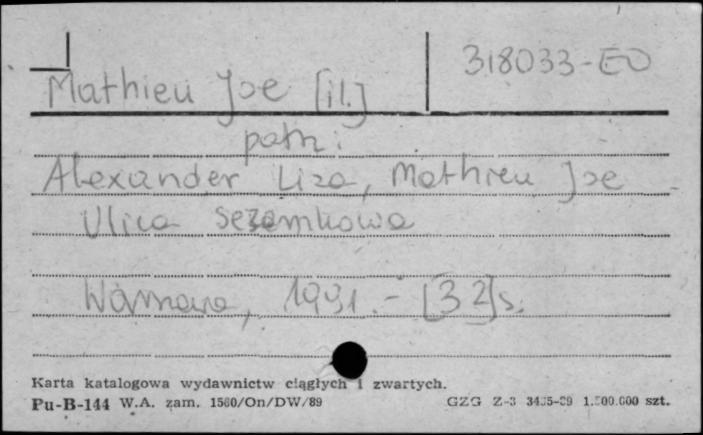 318033-EO
Mathieu Joe [il.]
patrz:
Alexander Liza, Mathieu Joe
Ulica Sezamkowa
Warszawa, 1991.- [32]s.
Karta katalogowa wydawnictw ciągłych i zwartych.
Pu-B-144 W.A. zam. 1560/On/DW/89 GZG Z-3 1.500.000 szt.